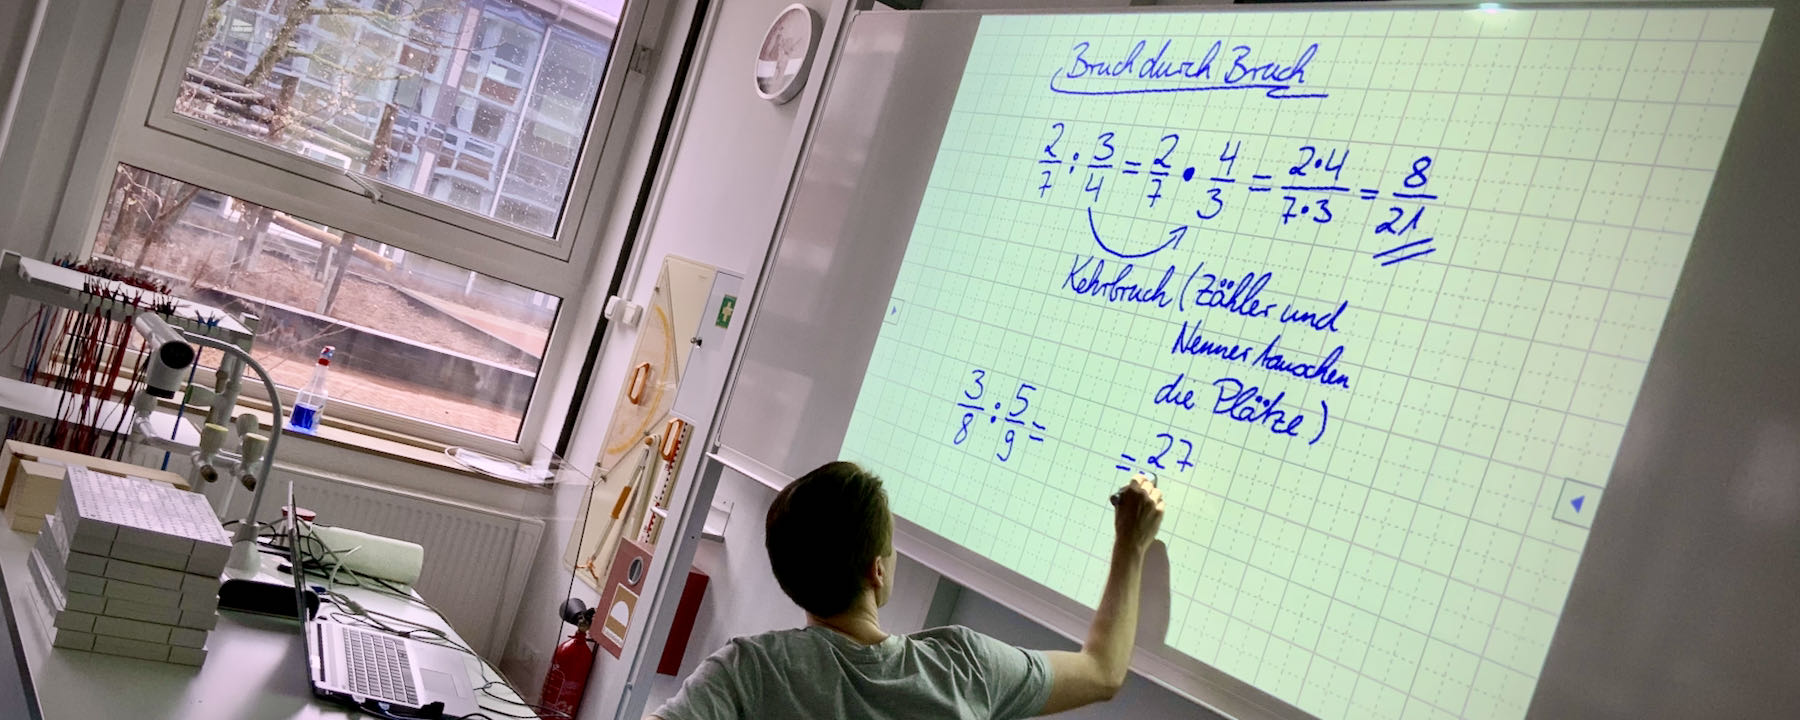 Bruch durch Bruch
2/7 : 3/4 = 2/7 • 4/3 = 2•4/7•3 = 8/21
Kehrbruch (Zähler und
Nenner tauschen
die Plätze)
3/8 : 5/9 = = 27